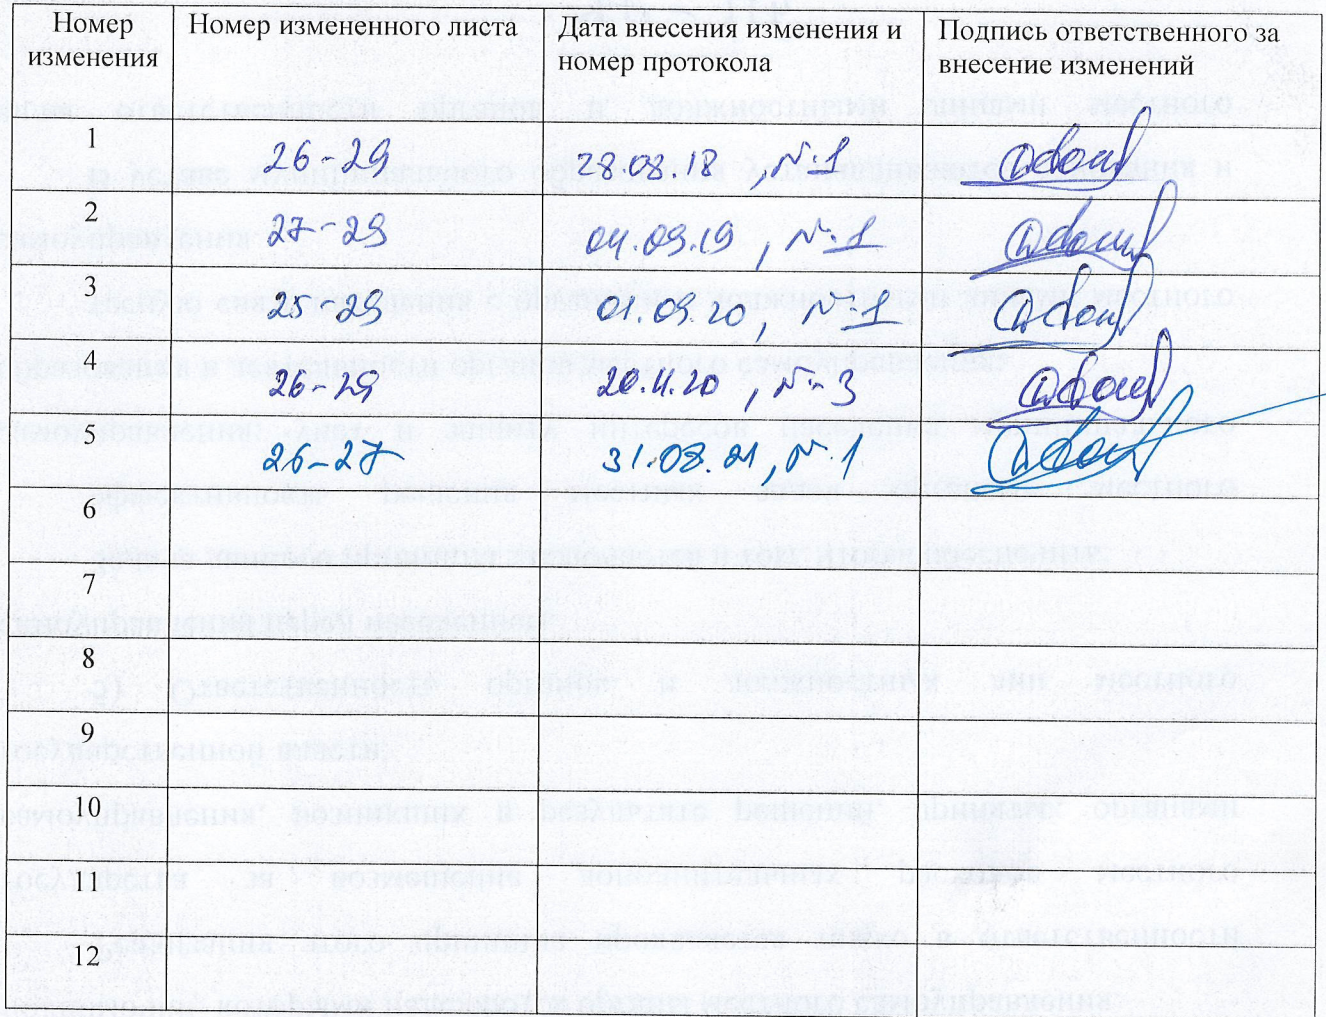 Номер изменения | Номер измененного листа | Дата внесения изменения и номер протокола | Подпись ответственного за внесение изменений
1 | 26-29 | 28.08.18, №1
2 | 27-29 | 04.09.19, №1
3 | 25-29 | 01.09.20, №1
4 | 26-29 | 20.11.20, №3
5 | 26-27 | 31.08.21, №1
6
7
8
9
10
11
12